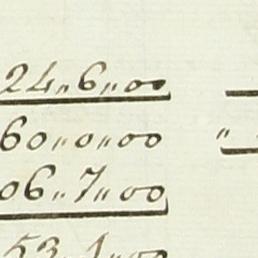 24〃6〃00
60〃0〃00 〃
06〃7〃00
53〃1〃00